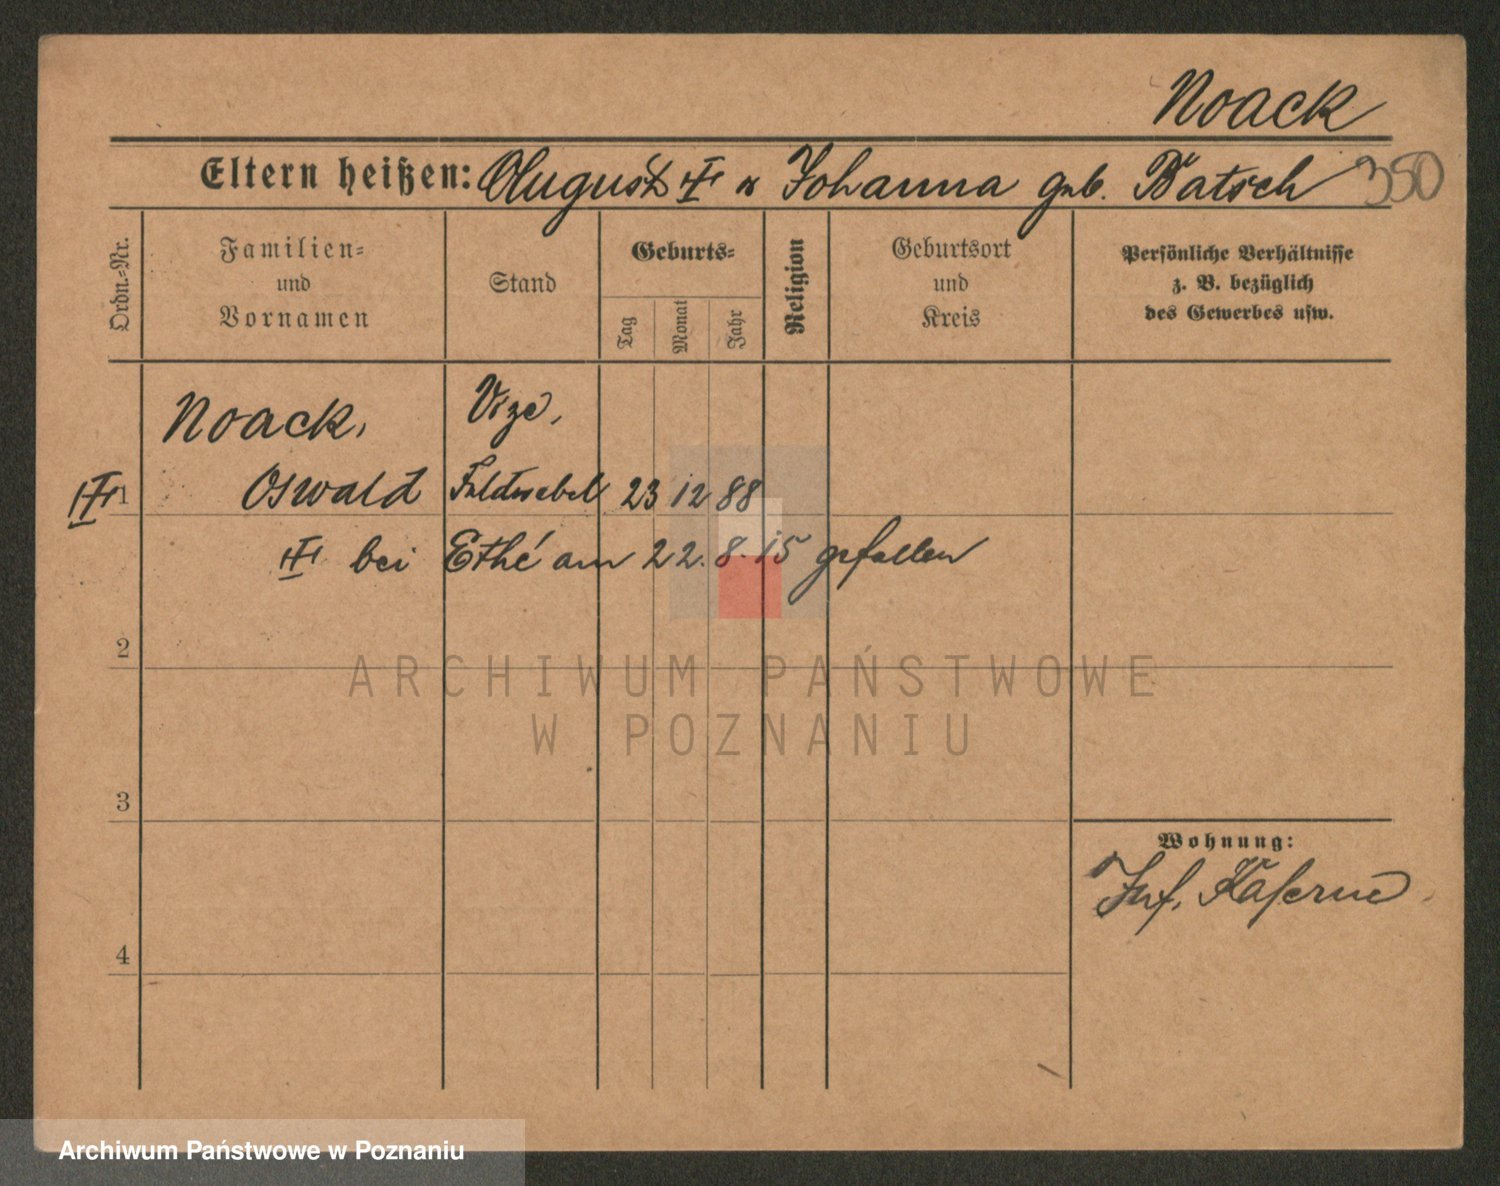 Noack
Eltern heißen: August ✝ u Johanna geb. Batsch 350
Ordn.=Nr.
Familien= und Vornamen
Stand
Geburts=
Tag
Monat
Jahr
Religion
Geburtsort und Kreis
Persönliche Verhältnisse
z. B. bezüglich
des Gewerbes usw.
Noack, Vize,
✝ 1 Oswald Feldwebel 23 12 88
✝ bei Ethé am 22. 8. 15 gefallen
2
3
4
Wohnung:
Inf. Kaserne
ARCHIWUM PAŃSTWOWE
W POZNANIU
Archiwum Państwowe w Poznaniu